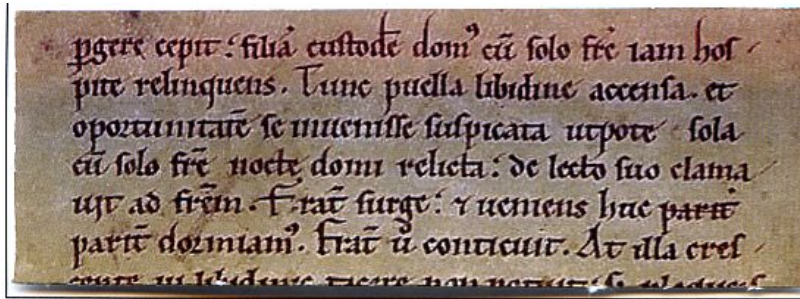 ꝑgere cepit: filiā custodē domꝰ cū solo fr̄e iam hos-
pite relinquens. Tunc puella libidine accensa. et
oportunitatē se inuenisse suspicata utpote sola
cū solo fr̄e nocte domi relicta: de lecto suo clama-
uit ad frēm. Frat̄ surge: ⁊ ueniens huc parit̄
parit̄ dormiamꝰ. Frat̄ ū conticuit. At illa cres-
cente in libidine tacere non